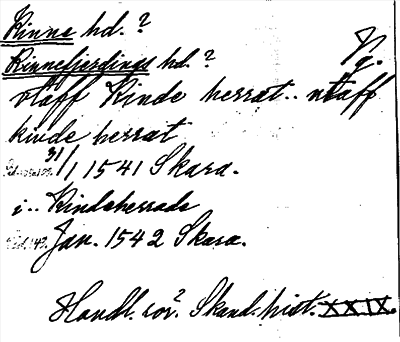 Kinne hd. ?
Kinnefjerdings hd. ? V. g.
vtaff Kinde herrat .. vtaff
kinde herrat
31/1 1541 Skara.
i .. Kindeherrade
Jan. 1542 Skara.
Handl. rör. Skand. hist. XXIX.